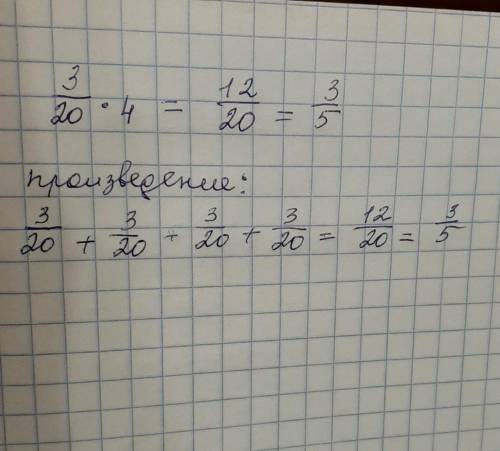 3/20 · 4 = 12/20 = 3/5
произведение:
3/20 + 3/20 + 3/20 + 3/20 = 12/20 = 3/5